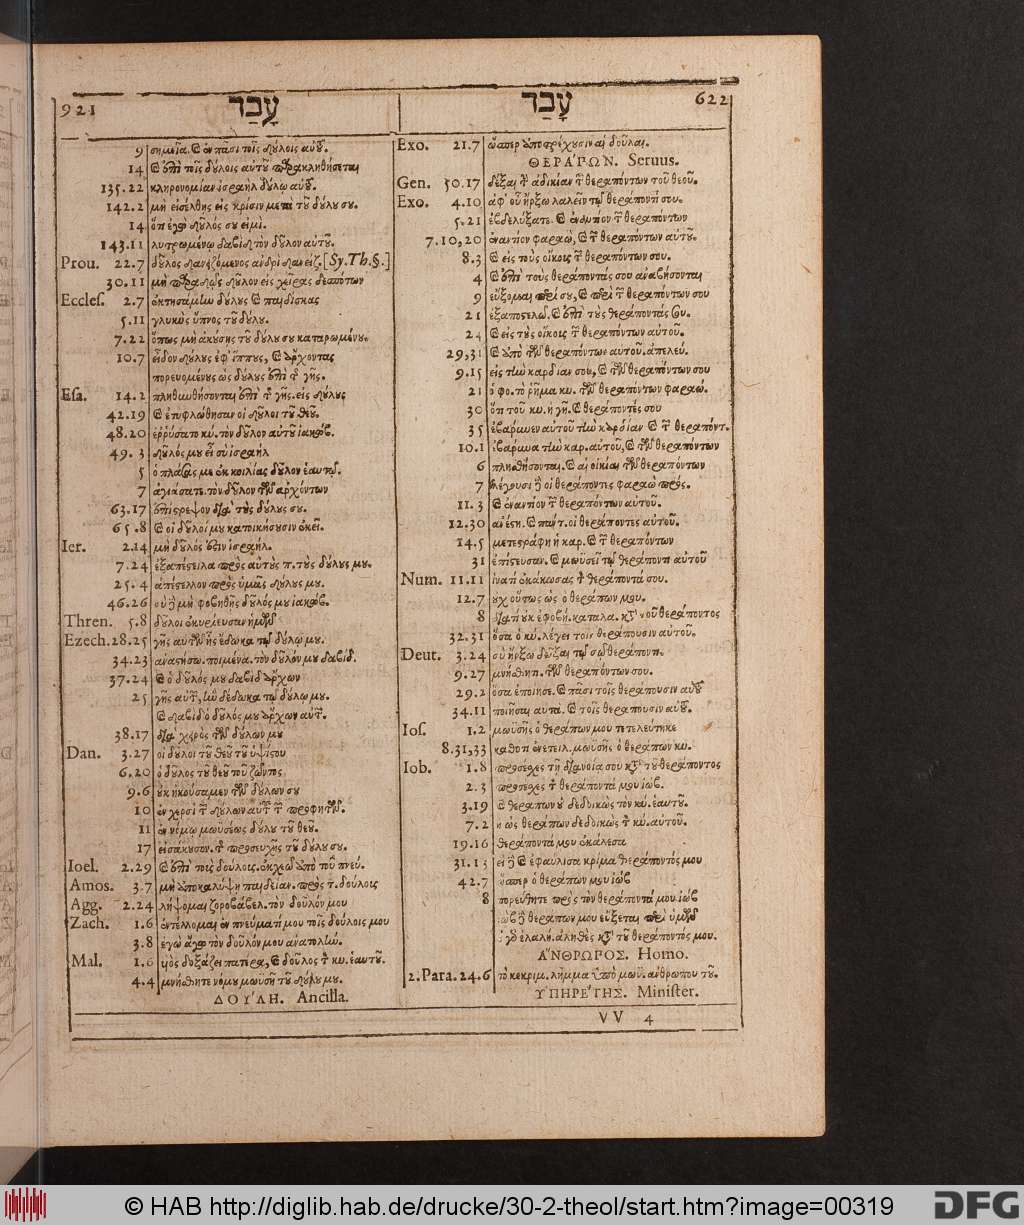 921 עָבַד
9 σημεῖα. & ἐν πᾶσι τοῖς δούλοις αὐτοῦ.
14 & ἐπὶ τοῖς δούλοις αὐτοῦ παρακληθήσεται
135.22 κληρονομίαν ἰσραὴλ δούλῳ αὐτοῦ.
142.2 μὴ εἰσέλθῃς εἰς κρίσιν μετὰ τοῦ δούλου σου.
14 ὅτι ἐγὼ δοῦλός σου εἰμί.
143.11 λυτρωμένῳ δαβὶδ τὸν δοῦλον αὐτοῦ.
Prou. 22.7 [Sy.Th.§.]
30.11 μὴ παραδῷς δοῦλον εἰς χεῖρας δεσπότων
Eccles. 2.7 ἐκτησάμην δούλους & παιδίσκας
5.11 γλυκὺς ὕπνος τοῦ δούλου.
7.22 ὅπως μὴ ἀκούσῃς τοῦ δούλου σου καταρωμένου.
10.7 εἶδον δούλους ἐφ' ἵππους, & ἄρχοντας
πορευομένους ὡς δούλους ἐπὶ τῆς γῆς.
Esa. 14.2 πληθυνθήσονται ἐπὶ τῆς γῆς. εἰς δούλους
42.19 & ἐτυφλώθησαν οἱ δοῦλοι τοῦ θεοῦ.
48.20 ἐρρύσατο κύ. τὸν δοῦλον αὐτοῦ ἰακώβ.
49.3 δοῦλός μου εἶ σὺ ἰσραὴλ
5 ὁ πλάσας με ἐκ κοιλίας δοῦλον ἑαυτῷ.
7 ἁγιάσατε τὸν δοῦλον τῶν ἀρχόντων
63.17 ἐπίστρεψον διὰ τοὺς δούλους σου.
65.8 & οἱ δοῦλοί μου κατοικήσουσιν ἐκεῖ.
Ier. 2.14 μὴ δοῦλός ἐστιν ἰσραήλ.
7.24 ἐξαπέστειλα πρὸς αὐτοὺς π. τοὺς δούλους μου.
25.4 ἀπέστελλον πρὸς ὑμᾶς δούλους μου.
46.26 σὺ δὲ μὴ φοβηθῇς δοῦλός μου ἰακώβ.
Thren. 5.8 δοῦλοι ἐκυρίευσαν ἡμῶν
Ezech. 28.25 γῆς αὐτῶν ἧς ἔδωκα τῷ δούλῳ μου.
34.23 ἀναστήσω. ποιμένα. τὸν δοῦλόν μου δαβίδ.
37.24 & ὁ δοῦλός μου δαβὶδ ἄρχων
25 γῆς αὐτῶν, ἣν δέδωκα τῷ δούλῳ μου.
& δαβὶδ ὁ δοῦλός μου ἄρχων αὐτῶν.
38.17 διὰ χειρὸς τῶν δούλων μου
Dan. 3.27 οἱ δοῦλοι τοῦ θεοῦ τοῦ ὑψίστου
6.20 ὁ δοῦλος τοῦ θεοῦ τοῦ ζῶντος
9.6 οὐκ ἠκούσαμεν τῶν δούλων σου
10 ἐν χερσὶ τῶν δούλων αὐτοῦ τῶν προφητῶν.
11 ἐν νόμῳ μωϋσέως δούλου τοῦ θεοῦ.
17 εἰσάκουσον. τῆς προσευχῆς τοῦ δούλου σου.
Ioel. 2.29 & ἐπὶ τοὺς δούλους. ἐκχεῶ ἀπὸ τοῦ πνεύ.
Amos. 3.7 μὴ ἀποκαλύψῃ παιδείαν. πρὸς τ. δούλους
Agg. 2.24 λήψομαι ζοροβάβελ. τὸν δοῦλόν μου
Zach. 1.6 ἐντέλλομαι ἐν πνεύματί μου τοῖς δούλοις μου
3.8 ἐγὼ ἄγω τὸν δοῦλόν μου ἀνατολήν.
Mal. 1.6 υἱὸς δοξάζει πατέρα, & δοῦλος τὸν κύ. ἑαυτοῦ.
4.4 μνήσθητε νόμου μωϋσῆ τοῦ δούλου μου.
ΔΟΥΛΗ. Ancilla.
עָבַד 622
Exo. 21.7 ὥσπερ ἀποτρέχουσιν αἱ δοῦλαι.
ΘΕΡΑΠΩΝ. Seruus.
Gen. 50.17 δέξαι τὴν ἀδικίαν τῶν θεραπόντων τοῦ θεοῦ.
Exo. 4.10 ἀφ' οὗ ἤρξω λαλεῖν τῷ θεράποντί σου.
5.21 ἐβδελύξατε. & ἐναντίον τῶν θεραπόντων
7.10,20 ἐναντίον φαραὼ, & τῶν θεραπόντων αὐτοῦ.
8.3 & εἰς τοὺς οἴκους τῶν θεραπόντων σου.
4 & ἐπὶ τοὺς θεράποντάς σου ἀναβήσονται
9 εὔξομαι περί σου, & περὶ τῶν θεραπόντων σου
21 ἐξαποστελῶ. & ἐπὶ τοὺς θεράποντάς σου.
24 & εἰς τοὺς οἴκους τῶν θεραπόντων αὐτοῦ.
29,31 & ἀπὸ τῶν θεραπόντων αὐτοῦ. ἀπελεύ.
9.15 εἰς τὴν καρδίαν σου, & τῶν θεραπόντων σου
21 ὁ φο. τὸ ῥῆμα κυ. τῶν θεραπόντων φαραώ.
30 ὅτι τοῦ κυ. ἡ γῆ. & θεράποντές σου
35 ἐβάρυνεν αὐτοῦ τὴν καρδίαν & τῶν θεραπόντ.
10.1 ἐβάρυνα τὴν καρ. αὐτοῦ, & τῶν θεραπόντων
6 πλησθήσονται. & αἱ οἰκίαι τῶν θεραπόντων
7 λέγουσι δὲ οἱ θεράποντες φαραὼ πρός.
11.3 & ἐναντίον τῶν θεραπόντων αὐτοῦ.
12.30 ἀνέστη. & πάντ. οἱ θεράποντες αὐτοῦ.
14.5 μετεστράφη ἡ καρ. & τῶν θεραπόντων
31 ἐπίστευσαν. & μωϋσεῖ τῷ θεράποντι αὐτοῦ
Num. 11.11 ἱνατί ἐκάκωσας τὸν θεράποντά σου.
12.7 οὐχ οὕτως ὡς ὁ θεράπων μου.
8 διατί οὐκ ἐφοβή. καταλα. κατὰ τοῦ θεράποντος
32.31 ὅσα ὁ κύ. λέγει τοῖς θεράπουσιν αὐτοῦ.
Deut. 3.24 σὺ ἤρξω δεῖξαι τῷ σῷ θεράποντι.
9.27 μνήσθητι. τῶν θεραπόντων σου.
29.2 ὅσα ἐποίησε. & πᾶσι τοῖς θεράπουσιν αὐτοῦ
34.11 ποιῆσαι αὐτά. & τοῖς θεράπουσιν αὐτοῦ.
Ios. 1.2 μωϋσῆς ὁ θεράπων μου τετελεύτηκε
8.31,33 καθότι ἐνετείλ. μωϋσῆς ὁ θεράπων κυ.
Iob. 1.8 προσέσχες τῇ διανοίᾳ σου κατὰ τοῦ θεράποντος
2.3 προσέσχες τὸν θεράποντά μου ἰώβ.
3.19 & θεράπων οὐ δεδοικὼς τὸν κύ. ἑαυτοῦ.
7.2 ἢ ὡς θεράπων δεδοικὼς τὸν κύ. αὐτοῦ.
19.16 θεράποντά μου ἐκάλεσα
31.13 εἰ δὲ & ἐφαύλισα κρίμα θεράποντός μου
42.7 ὥσπερ ὁ θεράπων μου ἰώβ
8 πορεύθητε πρὸς τὸν θεράποντά μου ἰώβ
ἰὼβ δὲ θεράπων μου εὔξεται περὶ ὑμῶν
ἀληθὲς κατὰ τοῦ θεράποντός μου.
ΑΝΘΡΩΠΟΣ. Homo.
2.Para. 24.6 τὸ κεκριμ. λῆμμα ὑπὸ μωϋ. ἀνθρώπου τοῦ.
ΥΠΗΡΕΤΗΣ. Minister.
VV 4
© HAB http://diglib.hab.de/drucke/30-2-theol/start.htm?image=00319
DFG